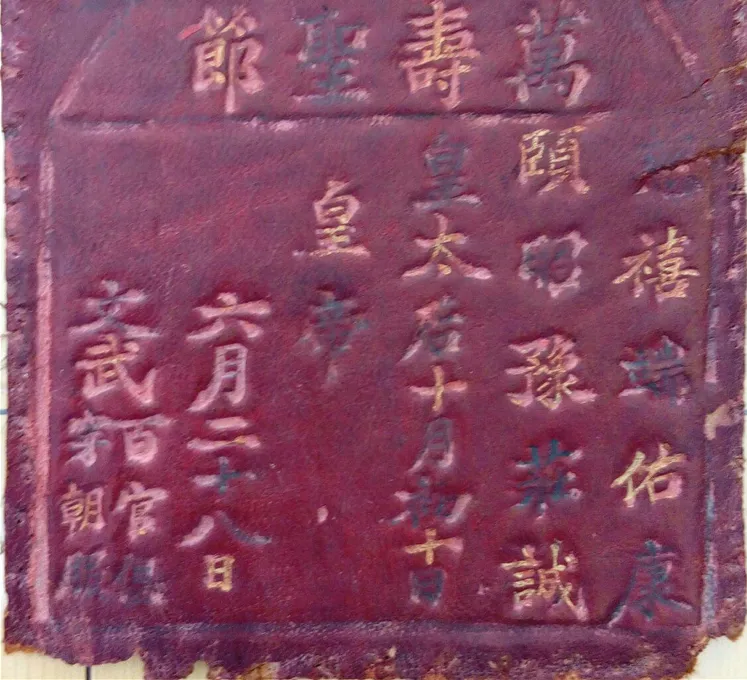 萬壽聖節
慈禧端佑康
頤昭豫莊誠
皇太后十月初十日
皇帝
六月二十八日
文武百官俱
穿朝服